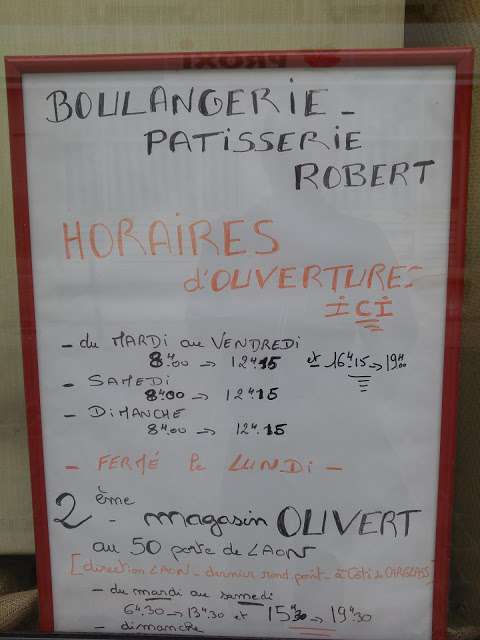 PROXI
BOULANGERIE -
PATISSERIE
ROBERT
HORAIRES
d'OUVERTURES
ICI
- du MARDI au VENDREDI
8H00 → 12H15 et 16H15 → 19H00
- SAMEDI
8H00 → 12H15
- DIMANCHE
8H00 → 12H15
- FERMÉ le LUNDI -
2ème - magasin OUVERT
au 50 porte de LAON
[direction LAON - dernier rond point - à Côté de CARGLASS]
- du mardi au samedi
6H30 → 13H30 et 15H30 → 19H30
- dimanche